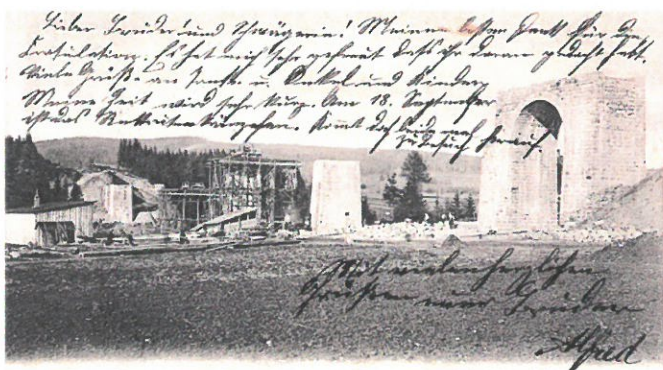 Lieber Bruder und Schwägerin! Meinen besten Dank für die
Gratulation. Es hat mich sehr gefreut dass ihr daran gedacht habt.
Viele Grüße an Tante u. Onkel und Kinder
Meine Zeit wird sehr kurz. Am 18. September
ist das
Kommt doch bald mal
zu Besuch herauf.
Mit vielen herzlichen
Grüßen euer Bruder
Alfred